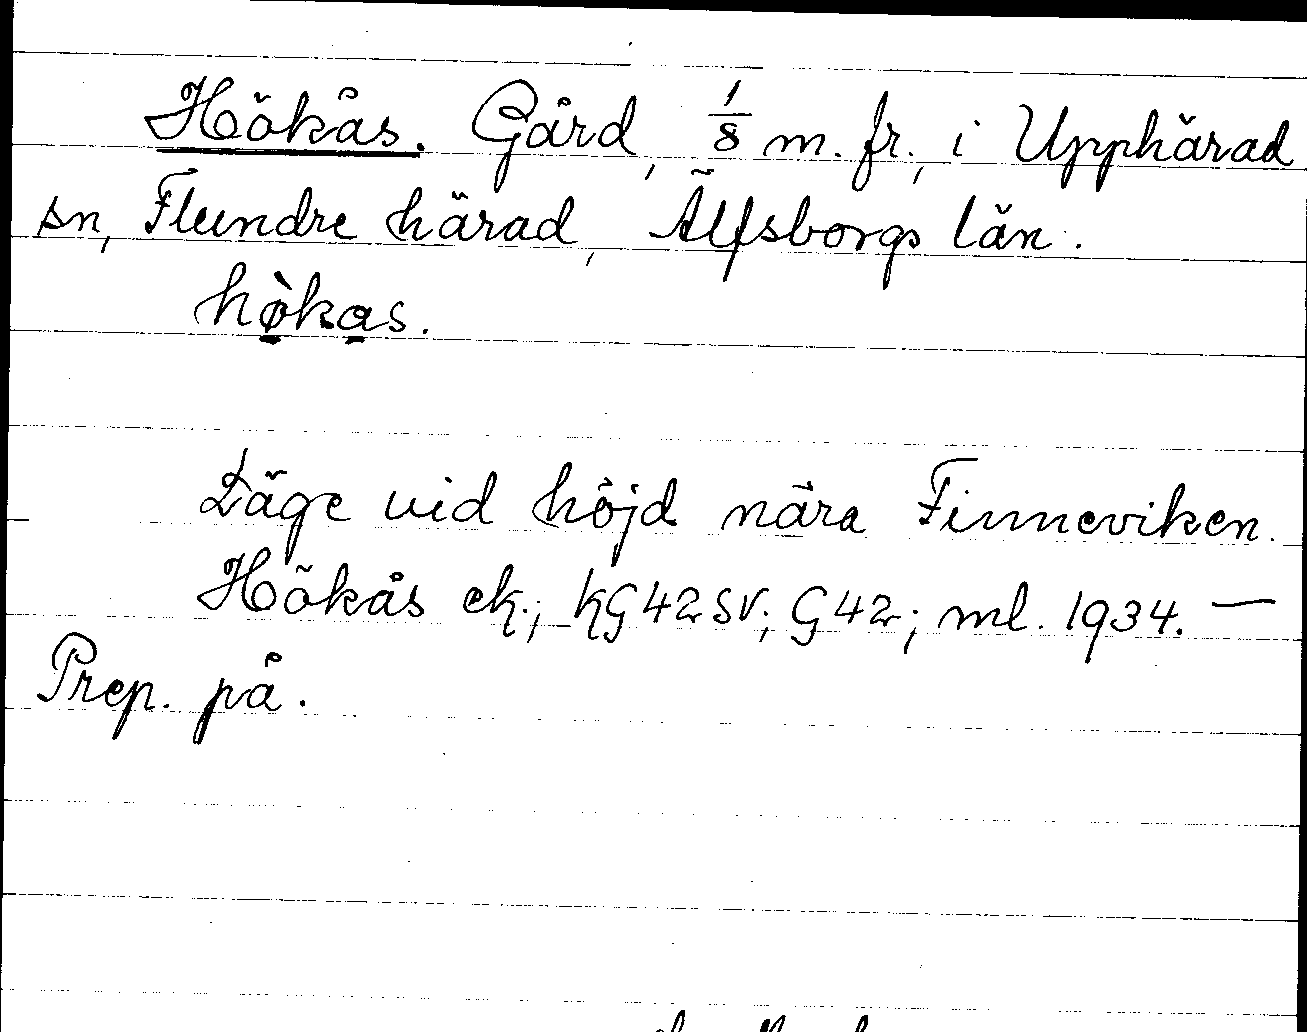 Hökås. Gård, 1/8 m. fr., i Upphärad
sn, Flundre härad, Älfsborgs län.
hø̀kas.
Läge vid höjd nära Finneviken.
Hökås ek.; KG42SV; G42; ml. 1934. —
Prep. på.